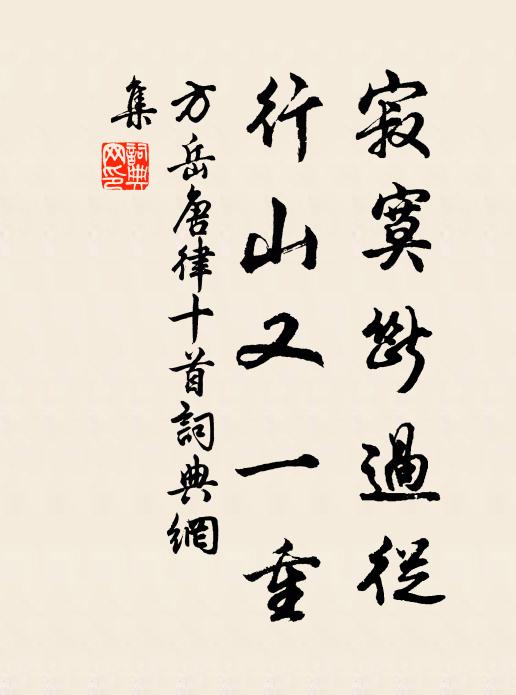 寂寞斷過從
行山又一重
方岳唐律十首詞典網
集
詞典
网印